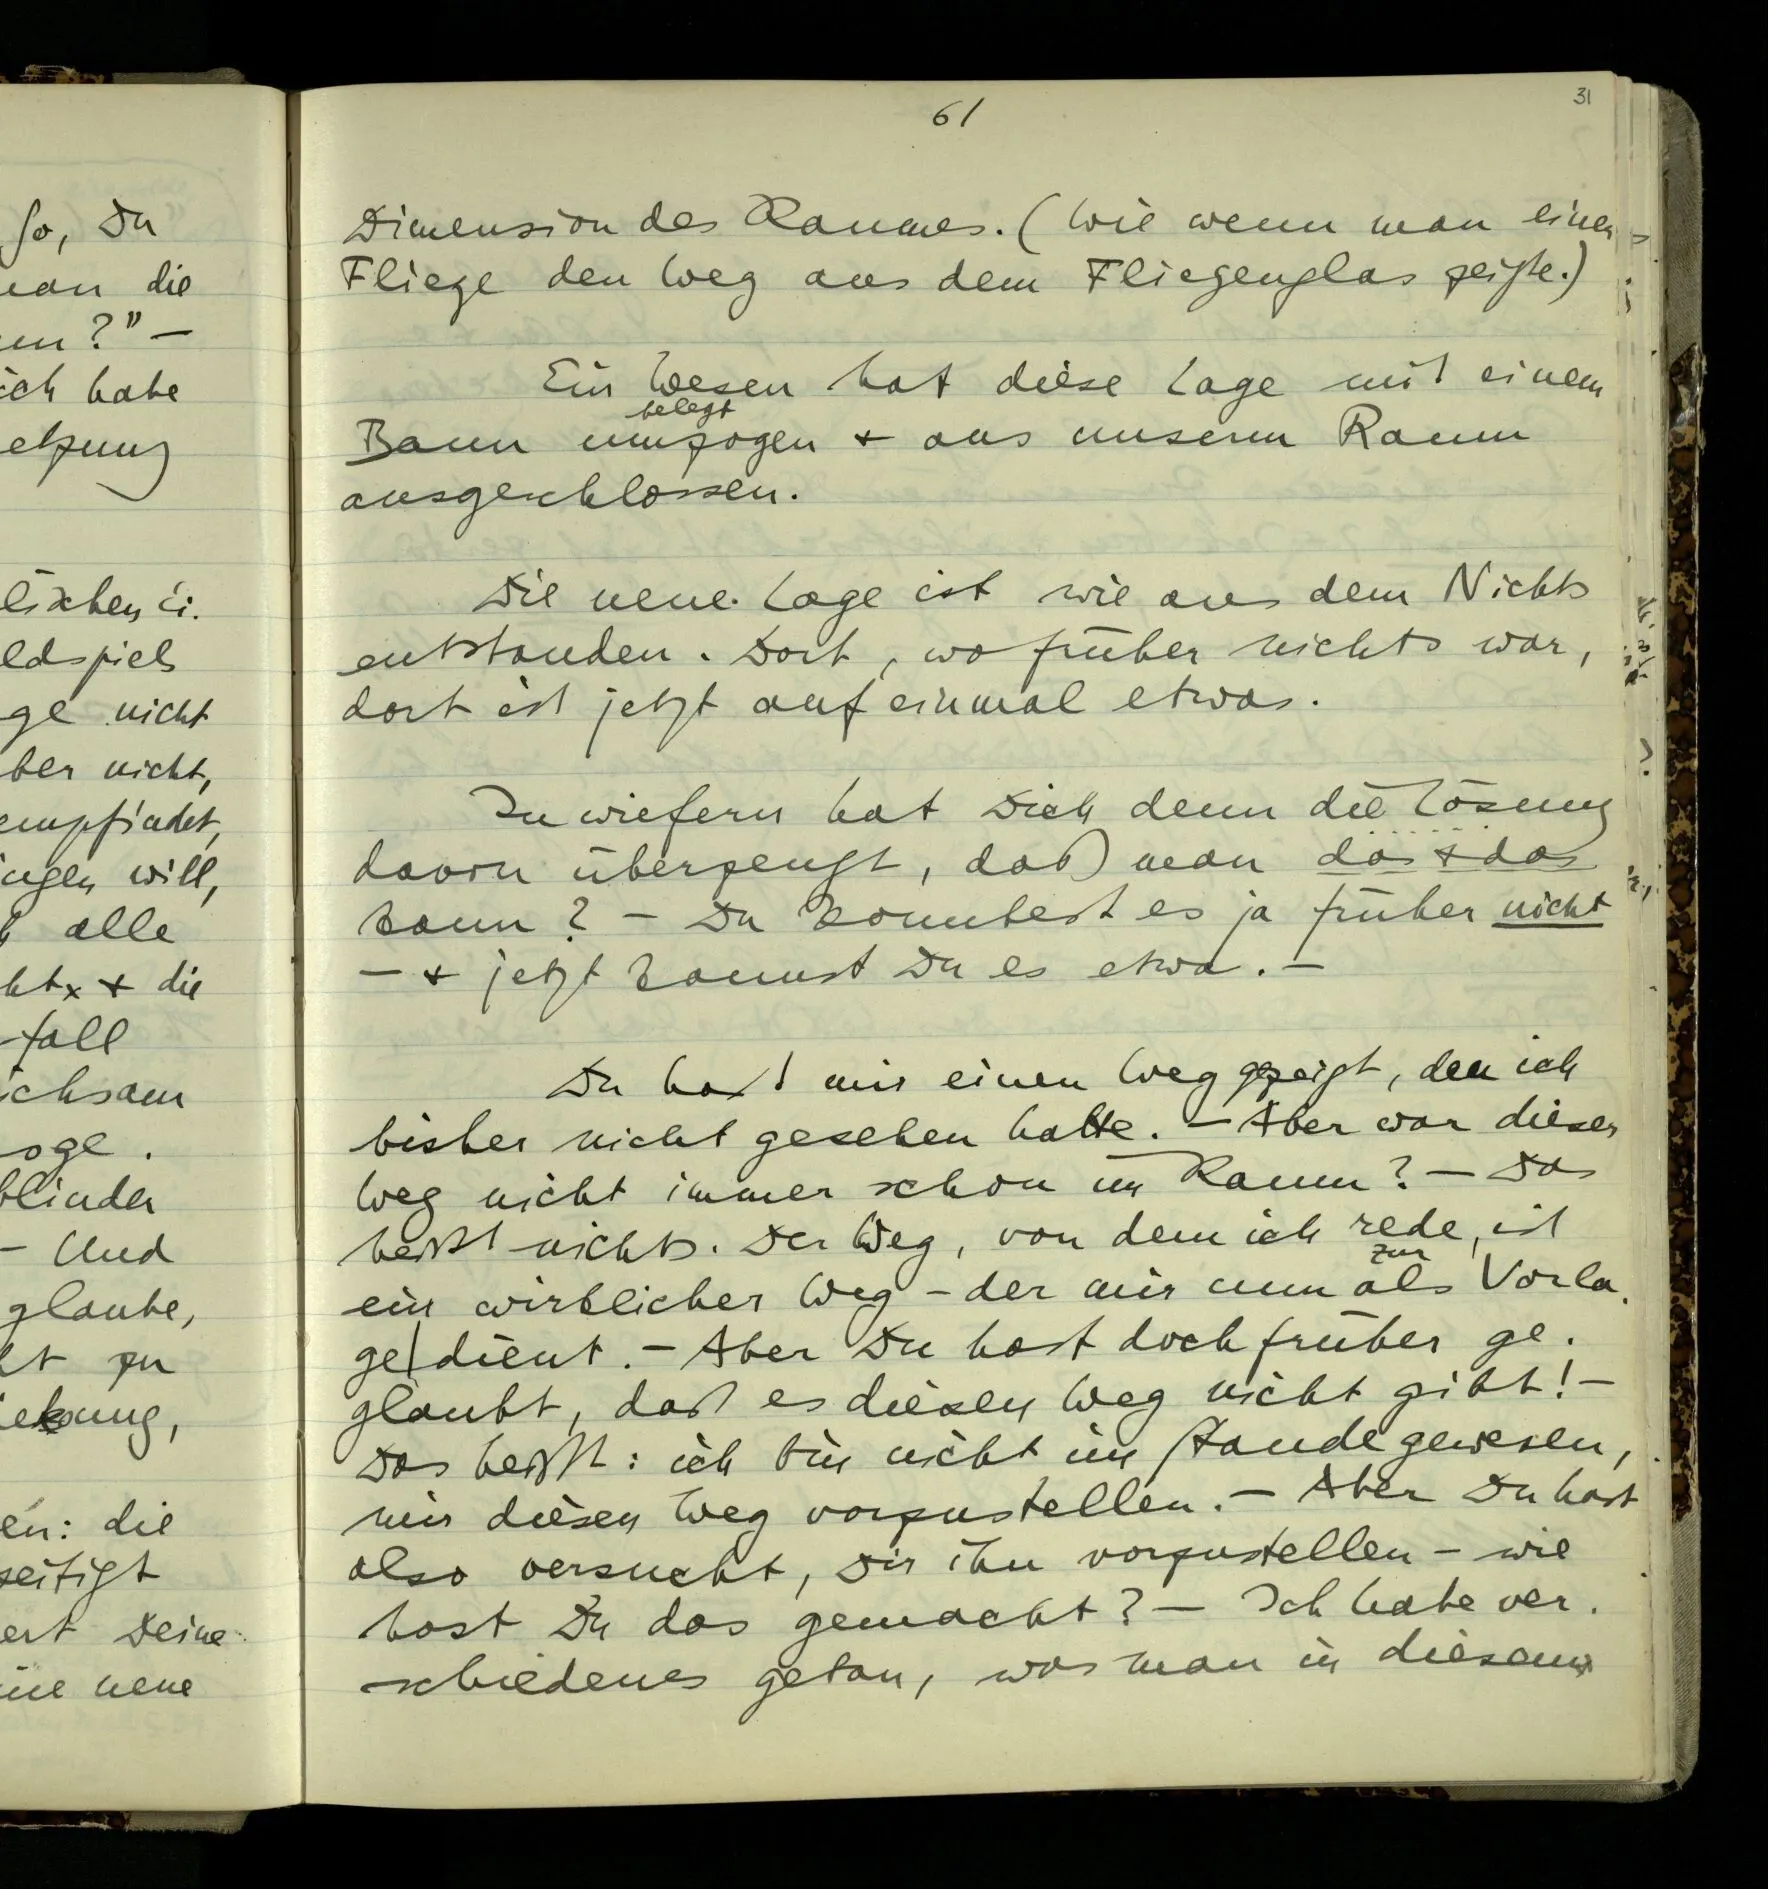 61
31
Dimension des Raumes. (Wie wenn man einer
Fliege den Weg aus dem Fliegenglas zeigte.)
Ein Wesen hat diese Lage mit einem
belegt
Bann umzogen + aus unserm Raum
ausgeschlossen.
Die neue Lage ist wie aus dem Nichts
entstanden. Dort, wo früher nichts war,
dort ist jetzt auf einmal etwas.
In wiefern hat Dich denn die Lösung
davon überzeugt, daß man das + das
kann? – Du konntest es ja früher nicht
– + jetzt kannst Du es etwa. –
Du hast mir einen Weg gezeigt, den ich
bisher nicht gesehen hatte. – Aber war dieser
Weg nicht immer schon im Raum? – Das
heißt nichts. Der Weg, von dem ich rede, ist
zur
ein wirklicher Weg – der mir nun als Vorla-
ge dient. – Aber Du hast doch früher ge-
glaubt, daß es diesen Weg nicht gibt! –
Das heißt: ich bin nicht im Stande gewesen,
mir diesen Weg vorzustellen. – Aber Du hast
also versucht, Dir ihn vorzustellen – wie
hast Du das gemacht? – Ich habe ver-
schiedenes getan, was man in diesem
so, Du
man die
?" –
ich habe
etzung
ldspiel
ge nicht
ber nicht,
empfindet,
ingen will,
alle
+ die
fall
ichsam
oge.
blinder
– Und
glaube,
zu
en: die
zeitigt
ert Deine
ine neue